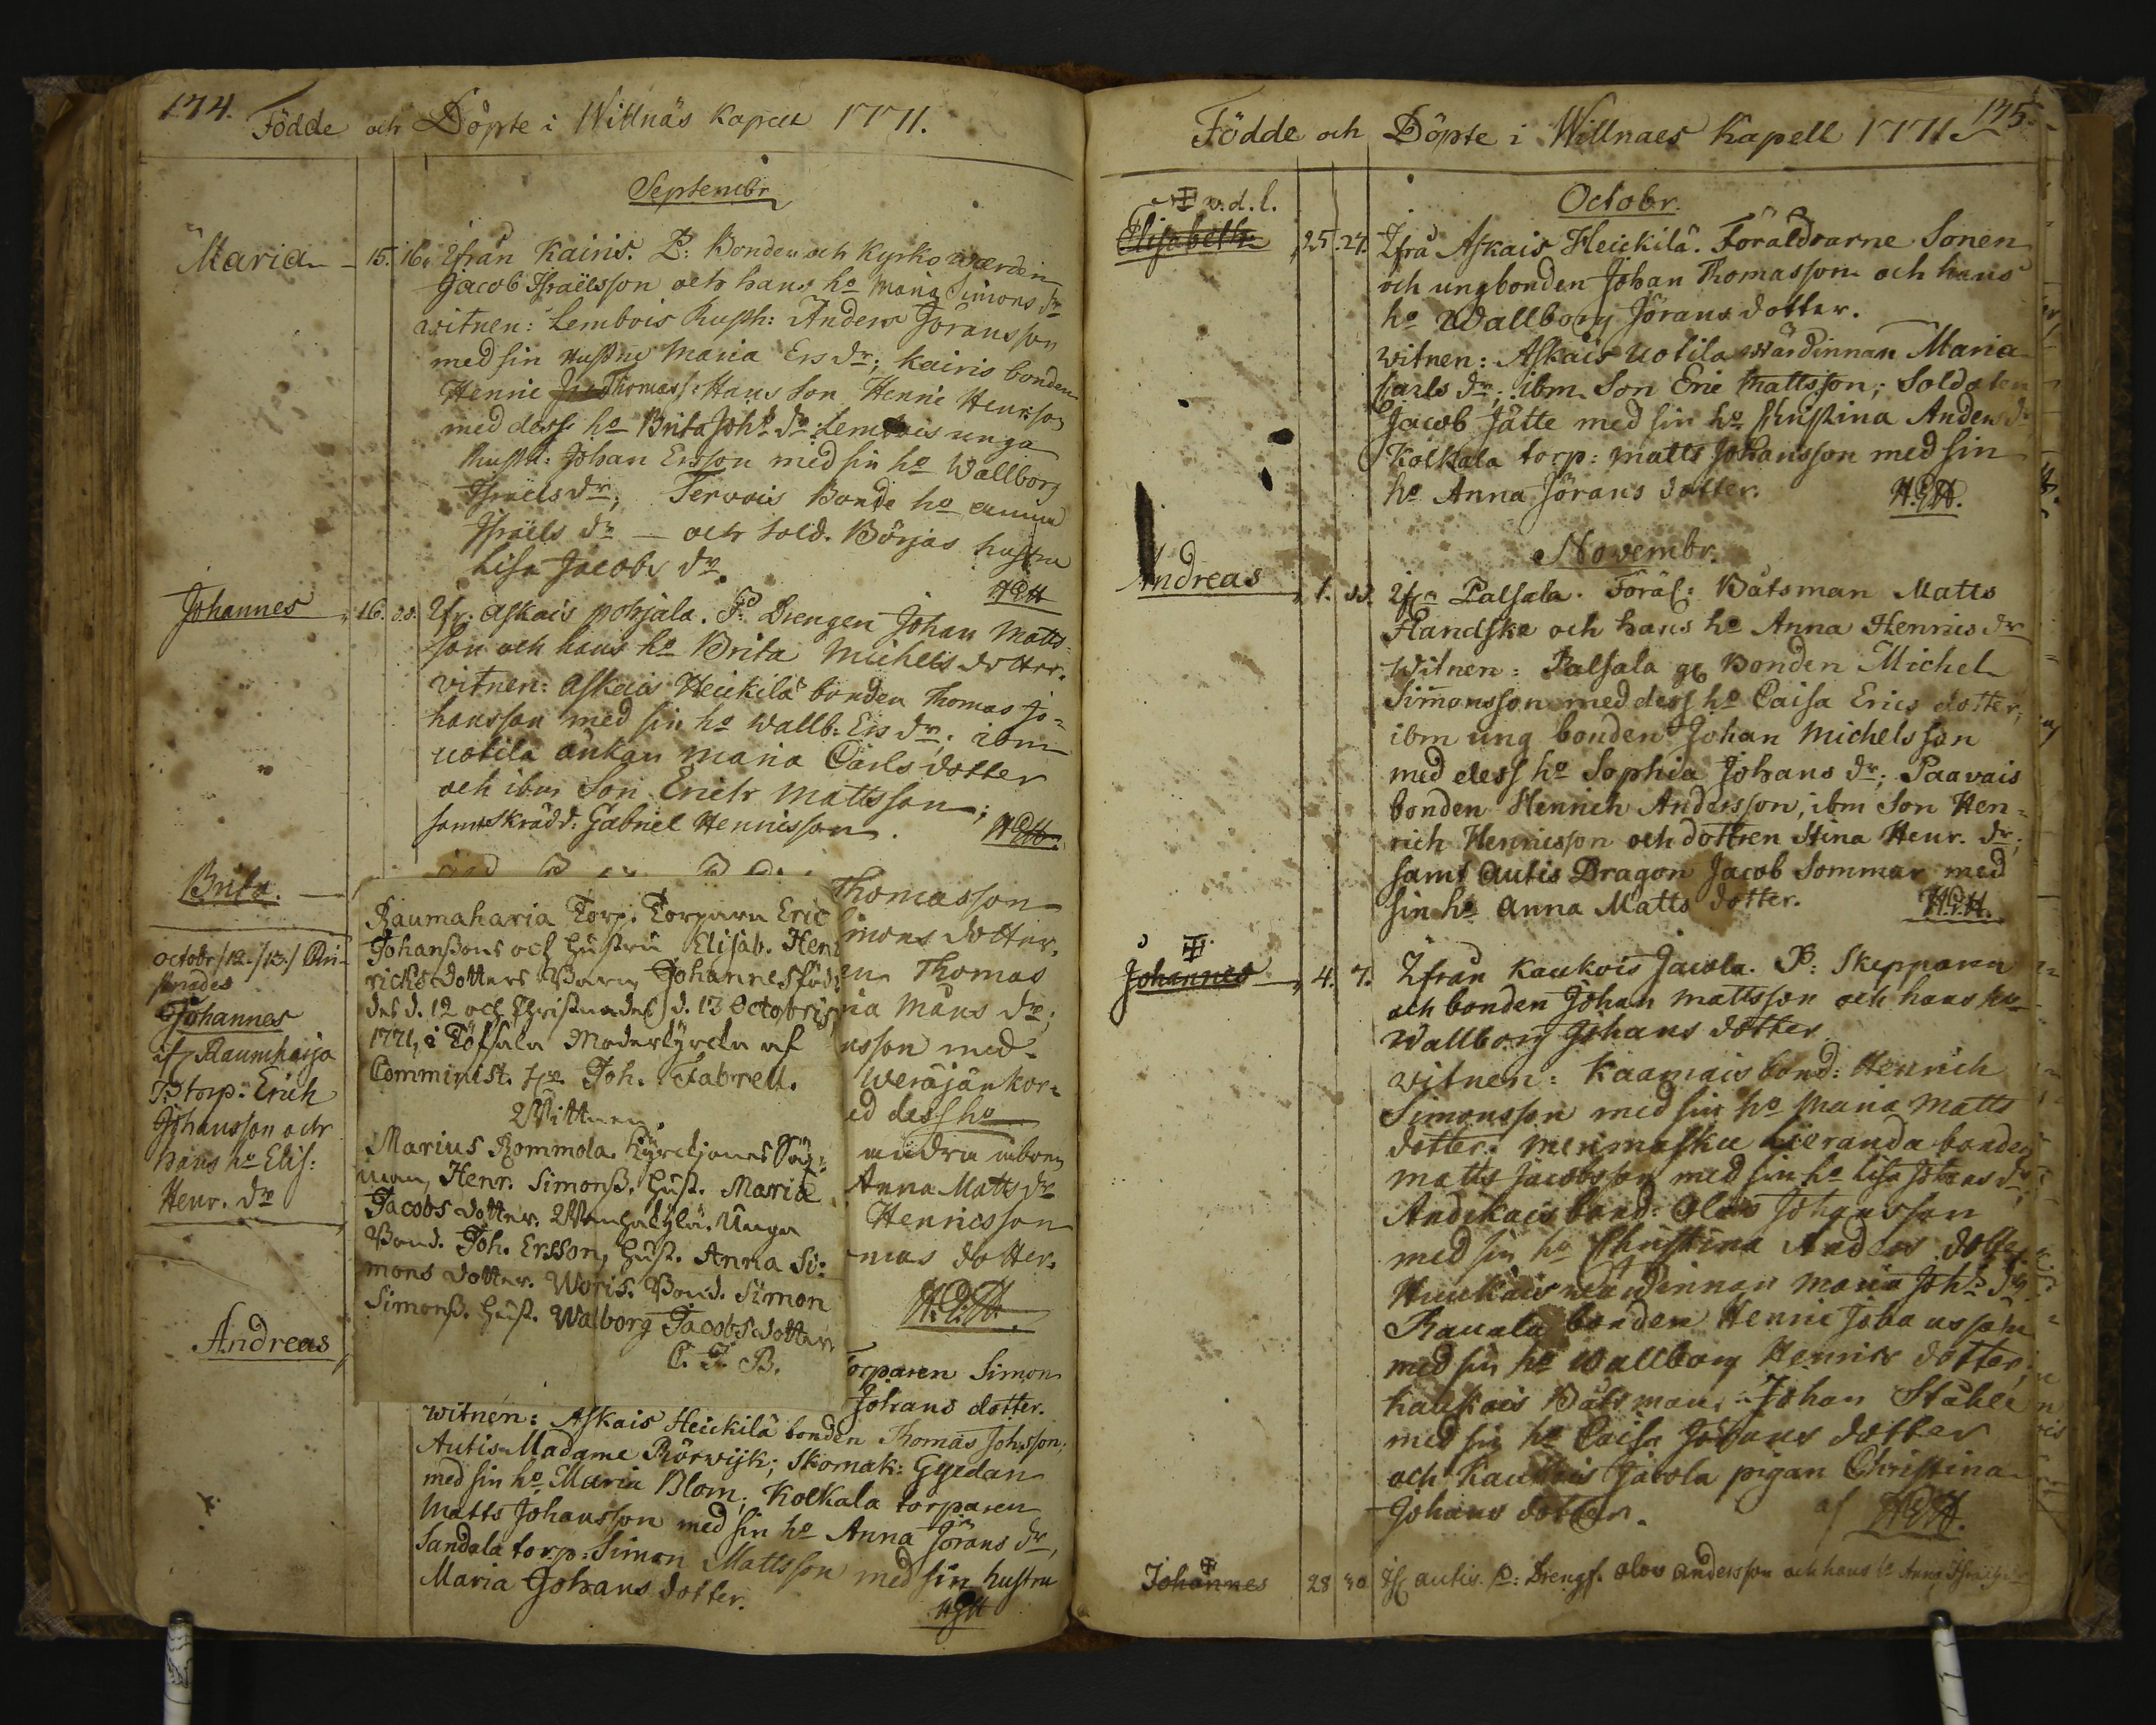 174.
Födde och Döpte i Willnäs Kapell 1771.
Septembr
Maria 15. 16. Ifrån Kairis. P: Bonden och Kyrko wärden
Jacob Israelsson och hans ho Maria Simons dr
witnen: Lembois Rusth: Anders Jöransson
med sin Hustru Maria Ers dr; Kairis bonden
Henric Thomass: Hans Son Henric Henrsson
med dess ho Brita Johs dr: Lembois unga
Rusth: Johan Ersson med sin ho Wallborg
Israels dr; Tervois Bonde ho
Israels dr — och Sold. Börjas hustru
Lisa Jacobs dr.
HGH
Johannes 16. d.s. Ifr. Askais Pohjala. P: Drengen Johan Matts
son och hans ho Brita Michels dotter.
witnen: Askais Heickilä bonden Thomas Jo=
hansson med sin ho Wallb: Ers dr; ibm
uotila änkan Maria Carls dotter
och ibm Son Erich Mattsson;
samt Skrädd: Gabriel Henricsson.
HGH
Brita.
Thomasson
mons dotter.
en Thomas
ria Måns dr;
nsson med
Weräjänkor=
ed dess ho
Anna Matts dr
Henricsson
mas dotter.
H.G.H.
octobr /12./13./
Johannes
if Raumharja
P: torp: Erich
Johansson och
hans ho Elis:
Henr. dr
Raumaharia Torp. Torparn Eric
Johanßons och hustru Elisab. Hen
richsdotters Barn Johannes föd:
des d. 12 och Christnades d. 13 Octobris
1771, i Töfsala Moderkyrcka af
Comminist. Joh. Fabrell.
Vittnen,
Marius Rommola. Kyrckjones
man, Henr. Simonß. hust. Maria
Jacobs dotter. Unga
Bond. Joh. Ersson, hust. Anna Si:
mons dotter. Woris. Bond. Simon
Simonß. hust. Walborg Jacobsdotter
C. F. B.
Andreas
Torparen Simon
Johans dotter.
witnen: Askais Heickilä bonden Thomas Johsson;
Autis Madame Rörwijk; Skomak: Gyedan
med sin ho Maria Blom; Kolkala torparen
Matts Johansson med sin ho Anna Jörans dr,
Sandala torp: Simon Mattsson med sin hustru
Maria Johans dotter.
HGH
175.
Födde och Döpte i Willnaes Kapell 1771
Octobr.
v.d.l.
Elisabeth 25. 27. Ifrå Askais Heickilä. Föräldrarne Sonen
och ungbonden Johan Thomasson och hans
ho Wallborg Jörans dotter.
witnen: Askais Uotila Wärdinnan Maria
Carls dr; ibm Son Eric Mattsson; Soldaten
Jacob Jätte med sin ho Christina Anders dr
Kolkala torp: Matts Johansson med sin
ho Anna Jörans dotter.
H.G.H.
Novembr.
Andreas 1. Ifrn Palsala. Föräl: Båtsman Matts
Handske och hans ho Anna Henrics dr
Witnen: Palsala Bonden Michel
Simonsson med dess ho Caisa Erics dotter,
ibm ung bonden Johan Michelsson
med dess ho Sophia Johans dr; Paavais
bonden Henrich Andersson, ibm Son Hen=
rich Henricsson och dottren Stina Henr. dr;
samt Autis Dragon Jacob Sommar med
sin ho Anna Matts dotter.
H.G.H.
Johannes 4. 7. Ifrån Kaukois Jacola. P: Skepparen
och bonden Johan Mattsson och hans ho
Wallborg Johans dotter
witnen: Kaamais bond: Henrich
Simonsson med sin ho Maria Matts
dotter: Merimasku Lieranda bonden
Matts Jacobsson med sin ho Lisa Johans dr,
Andikais bond: Olous Johansson
med sin ho Christina Anders dotter.
wärdinnan Maria Johs dr
Rauala bonden Henric Johansson
med sin ho Wallborg Henrics dotter,
Kaukois Båtsman: Johan Ståhle
med sin ho Caisa Johans dotter
och Kaukois Jacola pigan Christina
Johans dotter.
af HGH.
Johannes 28 30 Autis P: Drengs. Olov Andersson och hans ho Anna